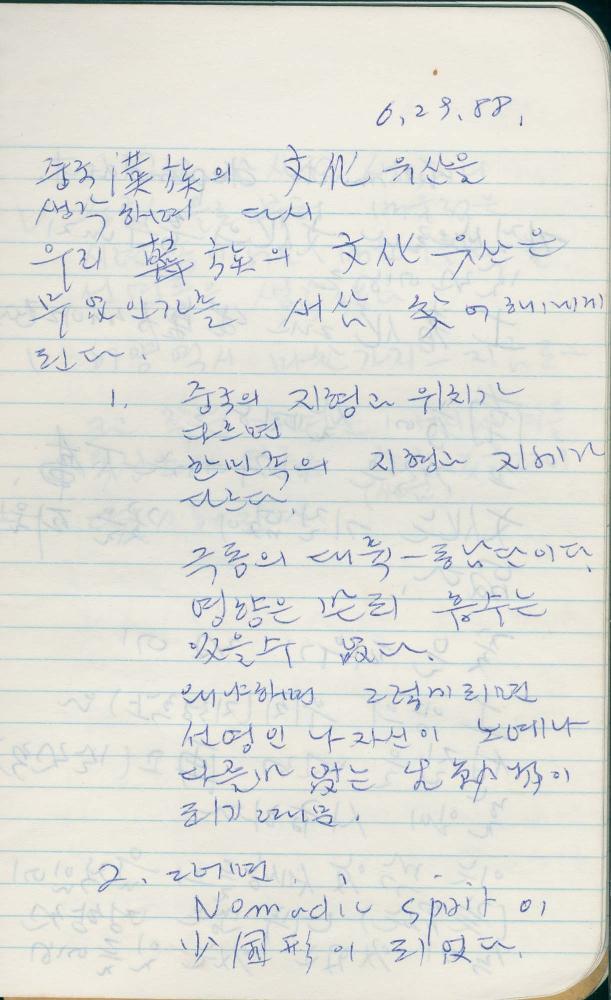 6, 29, 88,
중국 漢族의 文化 유산을
생각하며 다시
우리 韓族의 文化 유산은
무엇인가를 새삼 찾어 헤메게
된다.
1. 중국의 지형과 위치가
다르면
한민족의 지형과 지혜가
다르다.
극동의 대륙 - 동남단이다.
영향은 흡수는
있을수 없다.
왜냐하면 그렇게 되면
선영인 나 자신이 노예나
다름이 없는 이
되기 때문.
2. 그러면
Nomadic sprit 이
少國形이 되었다.